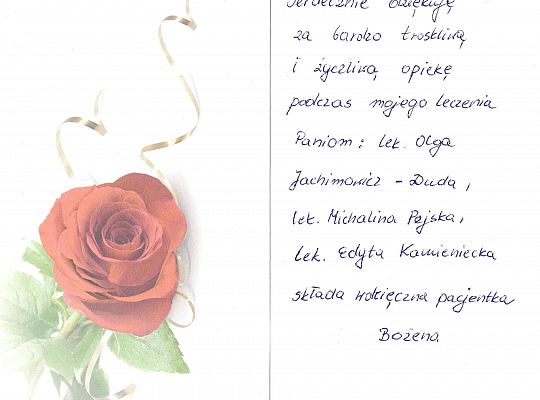 Serdecznie dziękuję
za bardzo troskliwą
i życzliwą opiekę
podczas mojego leczenia
Paniom: lek. Olga
Jachimowicz - Duda,
lek. Michalina Pejska,
lek. Edyta Kamieniecka
składa wdzięczna pacjentka
Bożena